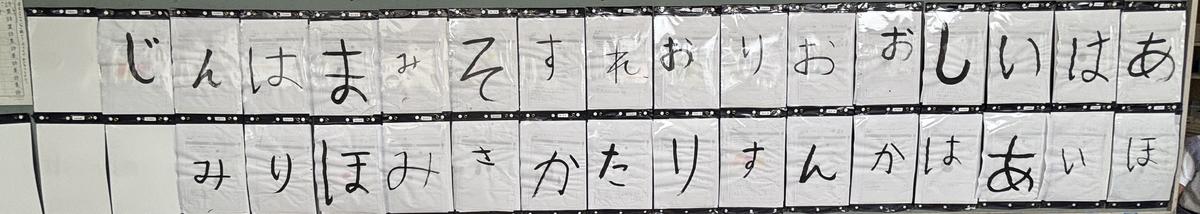 じんはまみそすれおりおおしいはあ
みりほみさかたりすんかはあいほ